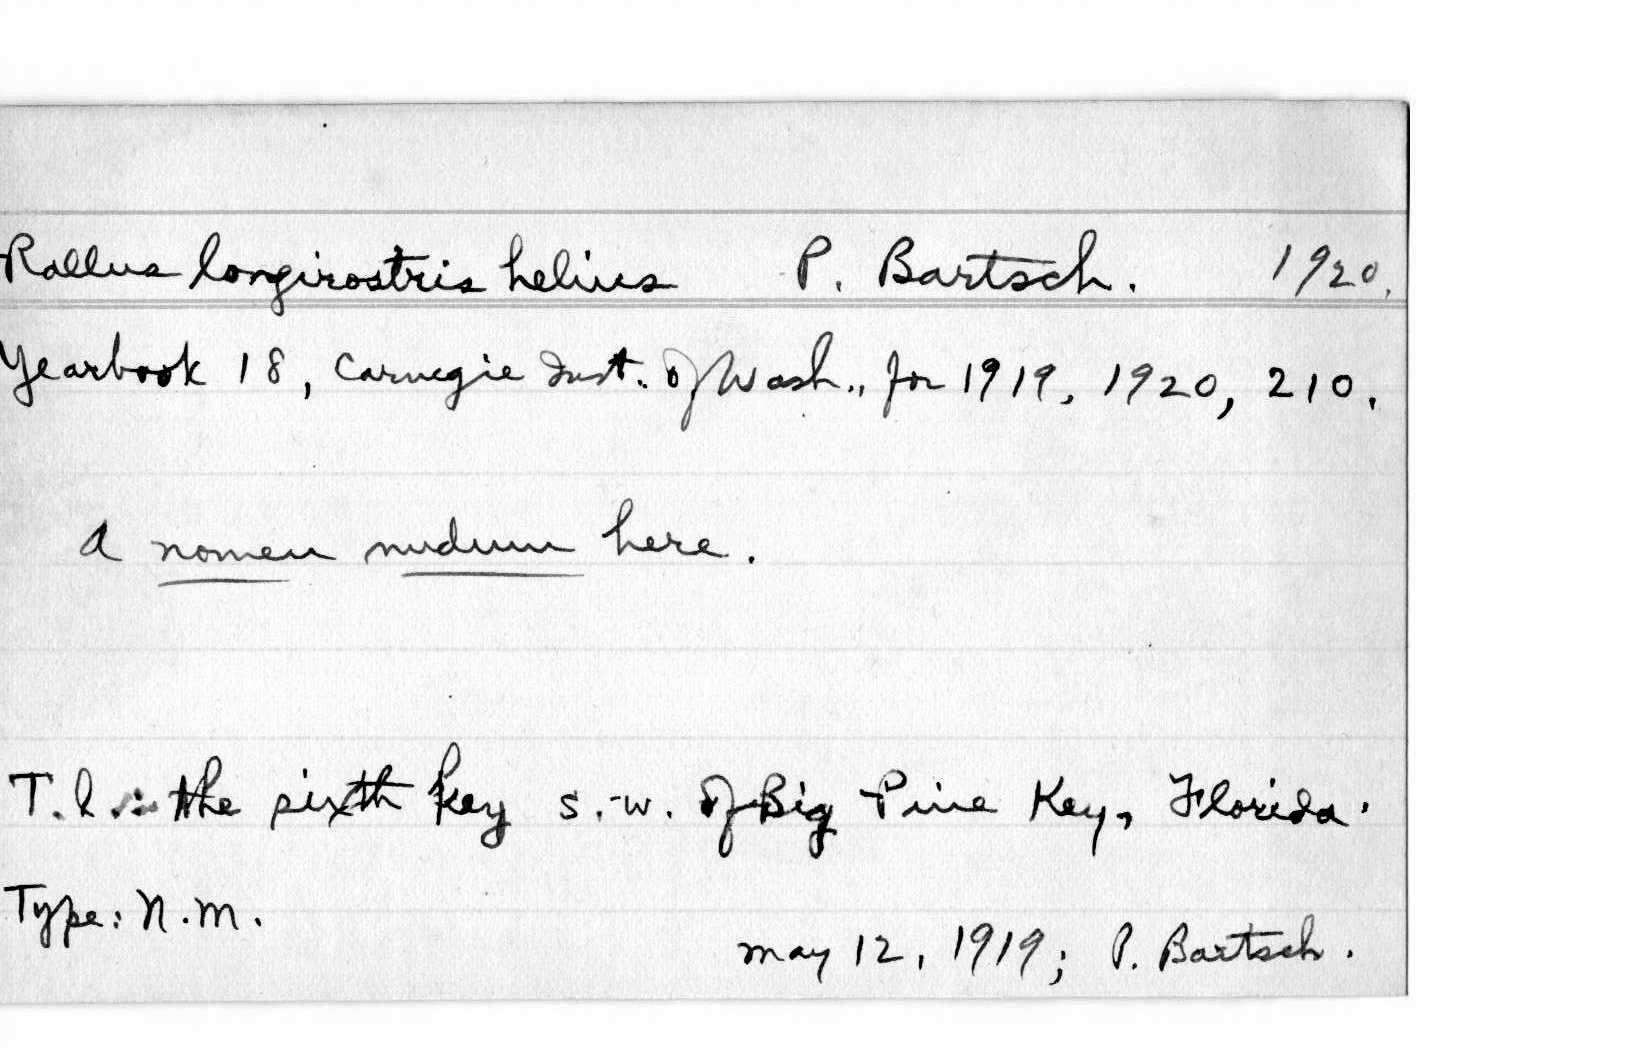 Rallus longirostris helius P. Bartsch. 1920.
Yearbook 18, Carnegie Inst. of Wash., for 1919, 1920, 210.
A nomen nudum here.
T.l.: the sixth key s.-w. of Big Pine Key, Florida.
Type: N.M.
May 12, 1919; P. Bartsch.